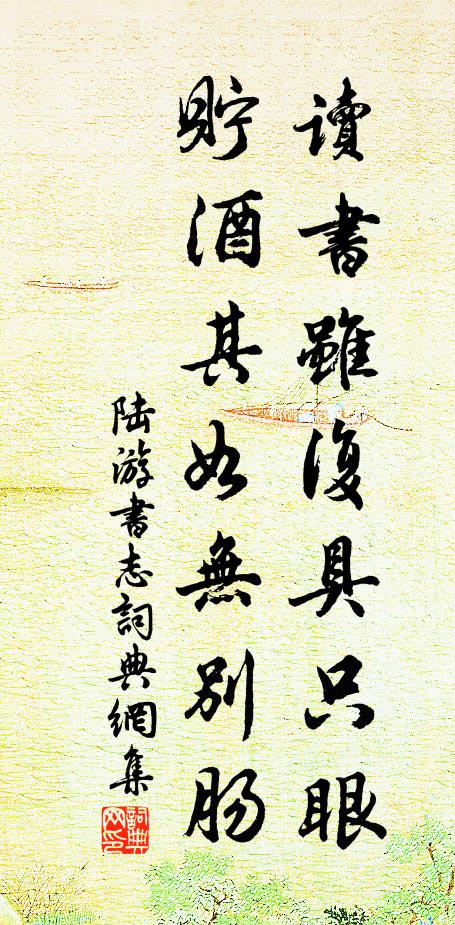 讀書雖復具只眼
貯酒其如無別腸
陆游書志詞典網集
詞典網印